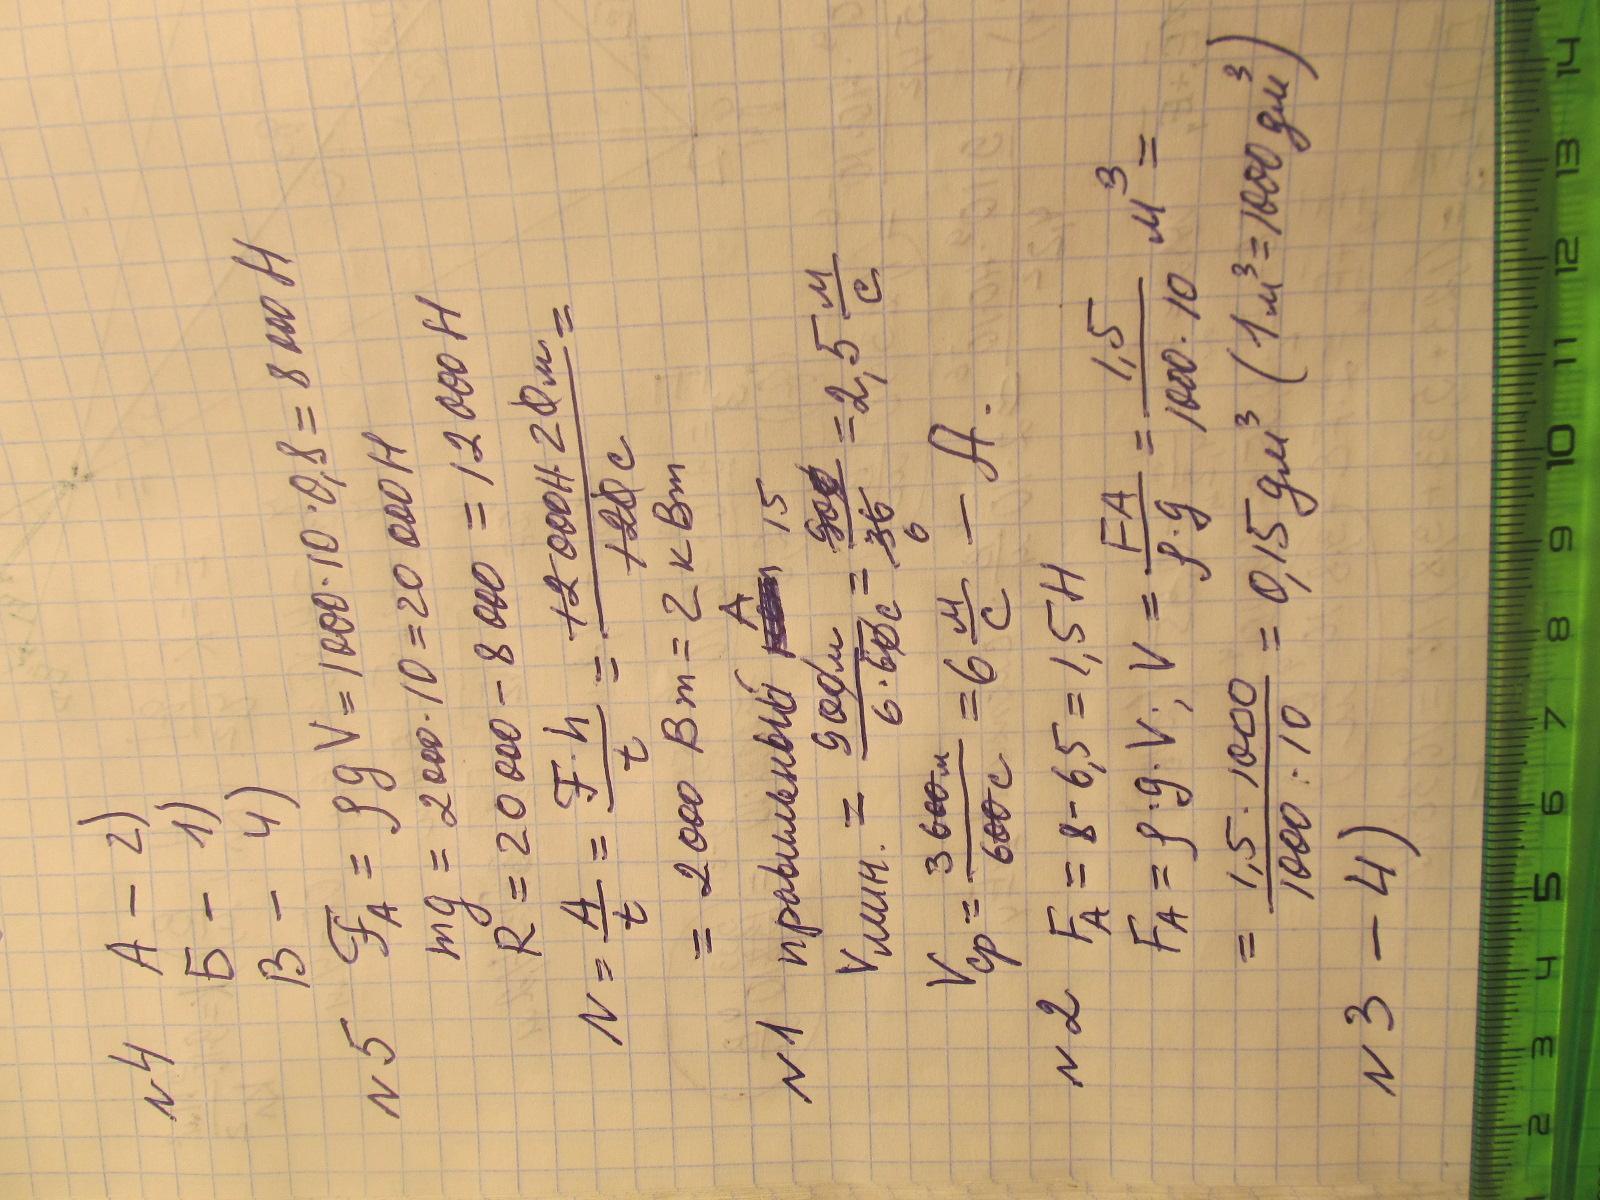 N4 А – 2)
Б – 1)
В – 4)
N5 FA = ρgV = 1000·10·0,8 = 8000Н
mg = 2000·10 = 20000Н
R = 20000 – 8000 = 12000Н
N = A/t = F·h/t = 12000Н·20м/120с =
= 2000 Вт = 2 кВт
N1 правильный А
Vмин. = 900м/6·60с = 900/36 = 2,5 м/с
15
6
Vср = 3600м/600с = 6 м/с – А.
N2 FA = 8 – 6,5 = 1,5Н
FA = ρ·g·V; V = FA/ρ·g = 1,5/1000·10 м³ =
= 1,5·1000/1000·10 = 0,15дм³ (1м³=1000дм³)
N3 – 4)
2 3 4 5 6 7 8 9 10 11 12 13 14